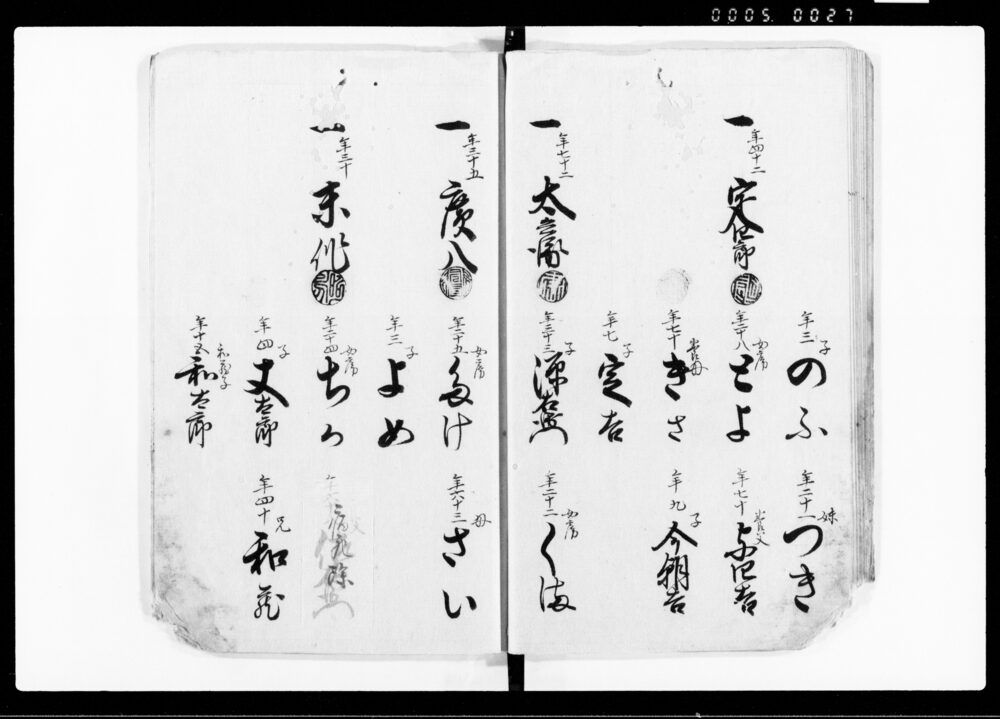 0005. 0027
年三 子 のふ
年二十一 妹 つき
一 年四十二
年二十八 女房 とよ
年七十
年七十 きさ
年九 子 今朝吉
年七 子 定吉
一 年七十二 太
年三十三 子 源
年二十二 女房 くま
一 年三十五 廣八
年二十五 女房 たけ
年六十三 母 さい
年三 子 よめ
一 年三十 末作
年二十四 女房 ちか
年四 子 丈太郎
年四十 兄 和蔵
年十五 和蔵子 和太郎